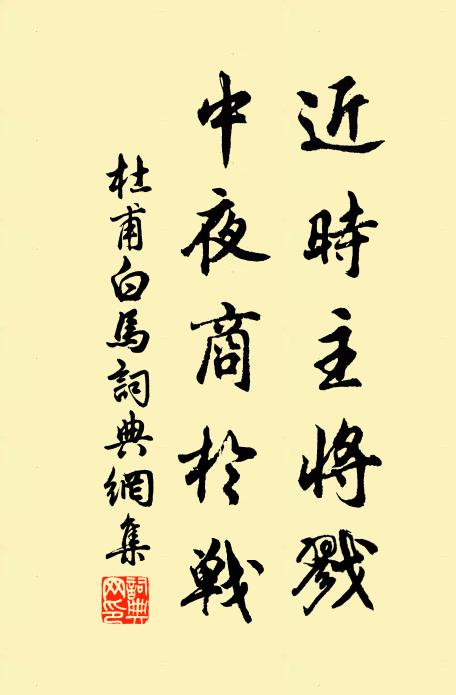 近時主將戮
中夜商於戦
杜甫白馬詞典網集